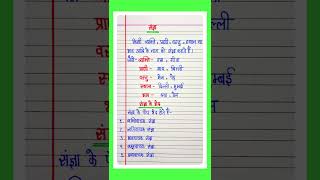 संज्ञा
किसी व्यक्ति, प्राणी, वस्तु, स्थान या
भाव आदि के नाम को संज्ञा कहते हैं।
जैसे- व्यक्ति - राम, सीता
प्राणी - गाय, बिल्ली
वस्तु - मेज, पेड़
स्थान - दिल्ली, मुम्बई
भाव
संज्ञा के भेद
संज्ञा के पाँच भेद होते हैं-
1. व्यक्तिवाचक संज्ञा
2. जातिवाचक संज्ञा
3. भाववाचक संज्ञा
4. समूहवाचक संज्ञा
5. द्रव्यवाचक संज्ञा